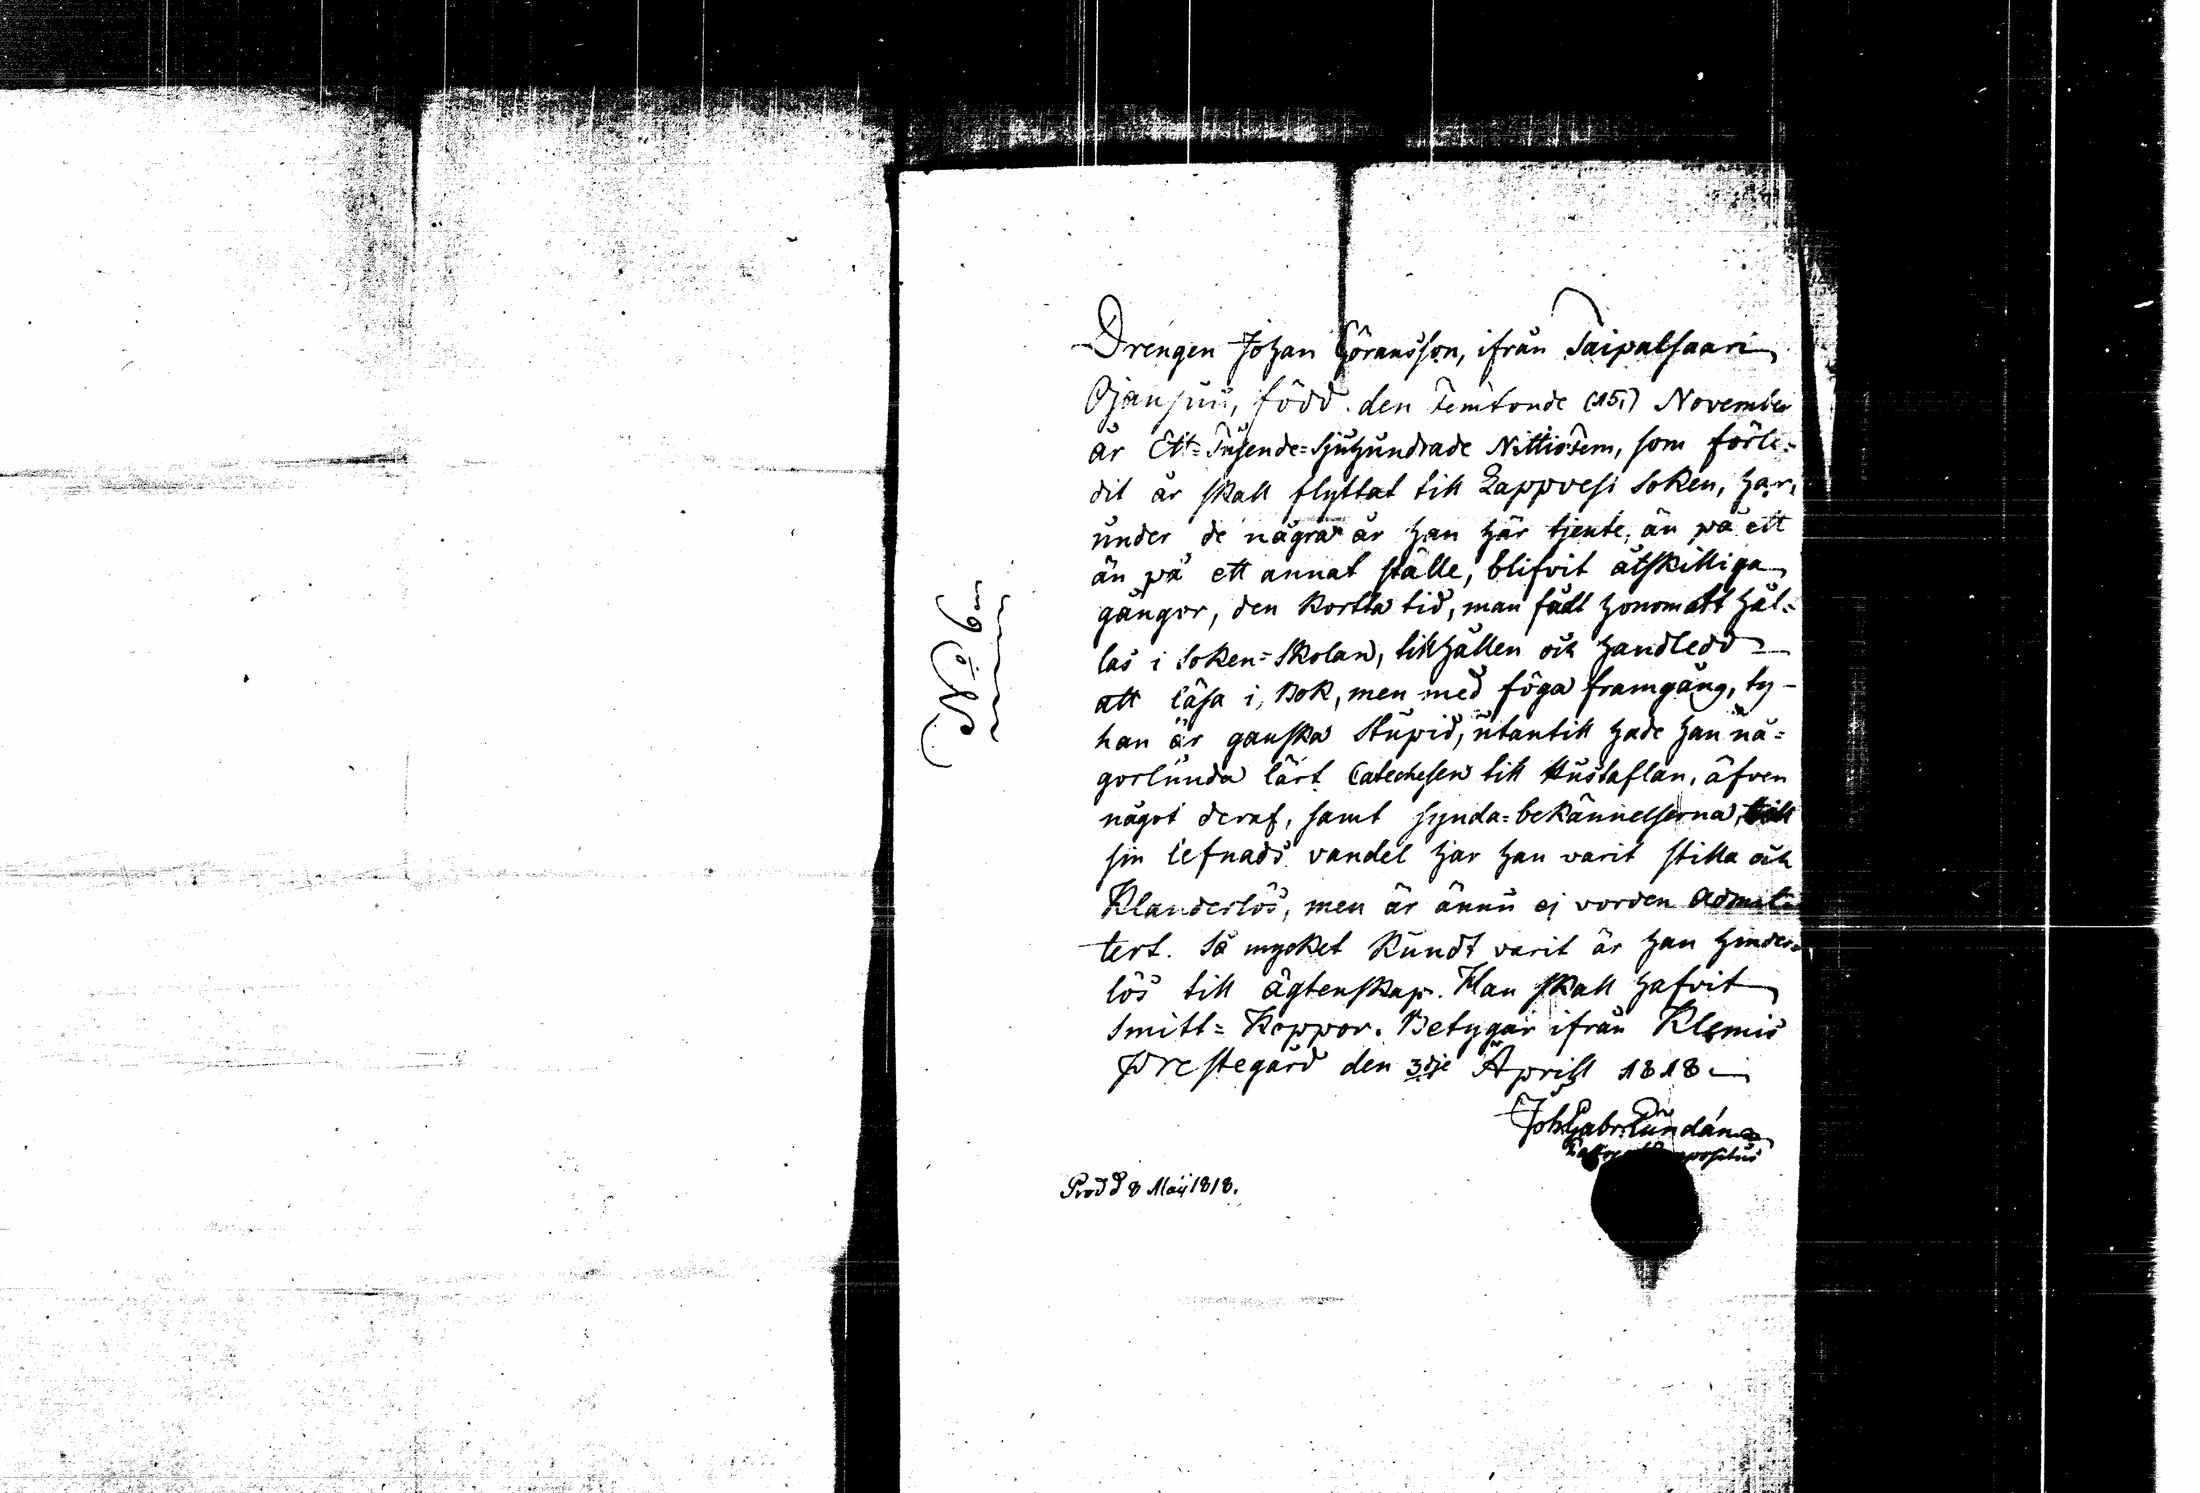 Drengen Johan Göransson, ifrån Taipalsaari
född den Femtonde (15.) November
år Ett=Tusende=Sjuhundrade Nittiofem, som förle=
dit år skall flyttat till Lappvesi Soken, har,
under de några år han här tjente, än på ett
än på ett annat ställe, blifvit åtskilliga
gångor, den korta tid, man fådt honom att hål=
las i Soken=Skolan, tillhållen och handledd
att läsa i Bok, men med föga framgång, ty
han är ganska Stupid, utantill hade han nå=
gorlunda lärt Catechesen till Hustaflan, äfven
något deraf, samt synda=bekännelserna,
sin lefnads vandel har han varit stilla och
Klanderlös, men är ännu ej vorden admit=
tert. Så mycket Kundt varit är han hinder=
lös till ägtenskap. Han skall hafvit
Smitt=Koppor. Betygar ifrån Klemis
Prestegård den 3dje Aprill 1818
Joh. Gabr. Lundán
Prod d 8 Maij 1818.
No 6